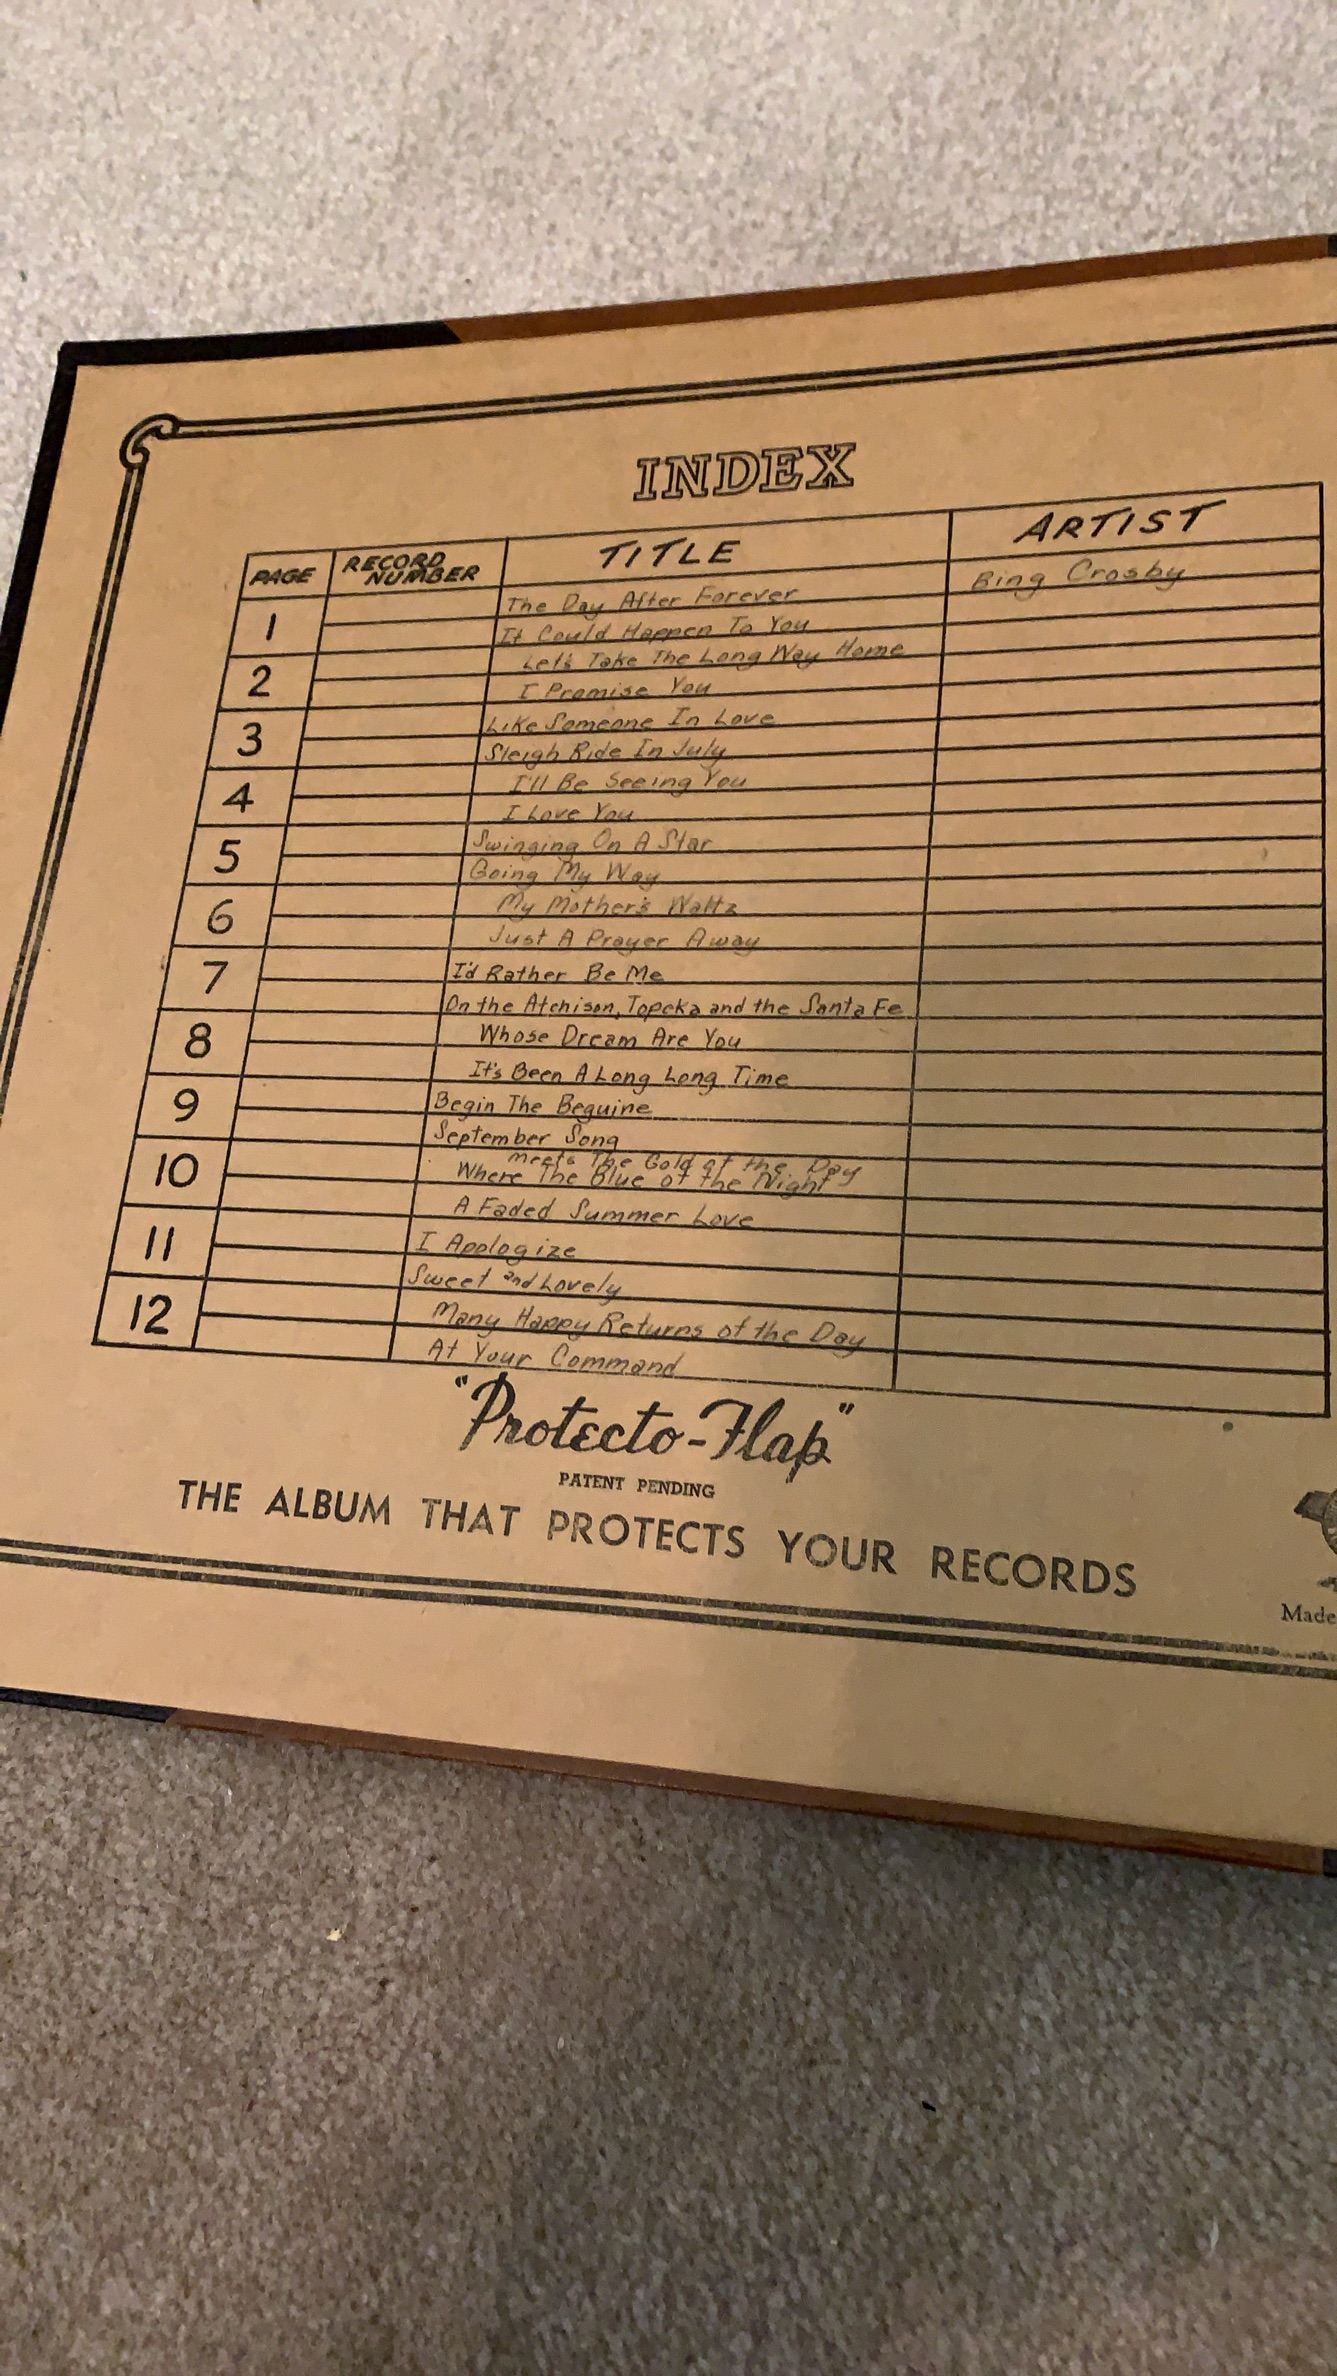 INDEX
PAGE RECORD NUMBER TITLE ARTIST
1 The Day After Forever Bing Crosby
It Could Happen To You
2 Let's Take The Long Way Home
I Promise You
3 Like Someone In Love
Sleigh Ride In July
4 I'll Be Seeing You
I Love You
5 Swinging On A Star
Going My Way
6 My Mother's Waltz
Just A Prayer Away
7 I'd Rather Be Me
On the Atchison, Topeka and the Santa Fe
8 Whose Dream Are You
It's Been A Long Long Time
9 Begin The Beguine
September Song
10 Where The Blue of the Night
meets The Gold of the Day
A Faded Summer Love
11 I Apologize
Sweet and Lovely
12 Many Happy Returns of the Day
At Your Command
"Protecto-Flap"
PATENT PENDING
THE ALBUM THAT PROTECTS YOUR RECORDS
Made